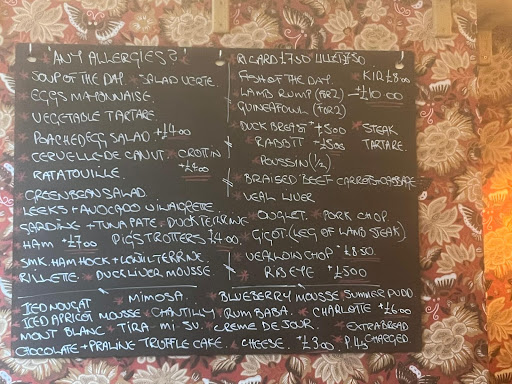 ANY ALLERGIES?
* SOUP OF THE DAY * SALAD VERTE.
* EGGS MAYONNAISE.
* VEGETABLE TARTARE.
* POACHED EGG SALAD +£4.00
* CERVELLE DE CANUT * CROTTIN +£4.00
* RATATOUILLE.
* GREEN BEAN SALAD.
* LEEKS + AVOCADO VINAIGRETTE
* SARDINE + TUNA PATE * DUCK TERRINE
* HAM +£7.00 PIGS TROTTERS £4.00
* SMK. HAM HOCK + LENTIL TERRINE.
* RILLETTE * DUCK LIVER MOUSSE.
* RICARD £7.50 LILLET £7.50
* FISH OF THE DAY. * KIR £8.00
* LAMB RUMP (FOR 2) +£10.00
* GUINEAFOWL (FOR 2)
* DUCK BREAST +£5.00 * STEAK TARTARE.
* RABBIT +£5.00
* POUSSIN (1/2)
* BRAISED BEEF CARROTS + CABBAGE
* VEAL LIVER
* ONGLET * PORK CHOP
* GIGOT (LEG OF LAMB STEAK)
* VEAL LOIN CHOP * £8.50
* RIB EYE +£5.00
ICED NOUGAT * MIMOSA. * BLUEBERRY MOUSSE * SUMMER PUDD
ICED APRICOT MOUSSE * CHANTILLY * RUM BABA. * CHARLOTTE +£6.00
MONT BLANC * TIRA-MI-SU * CREME DE JOUR. * EXTRA BREAD CHARGED
CHOCOLATE + PRALINE TRUFFLE CAFE. * CHEESE. +£3.00